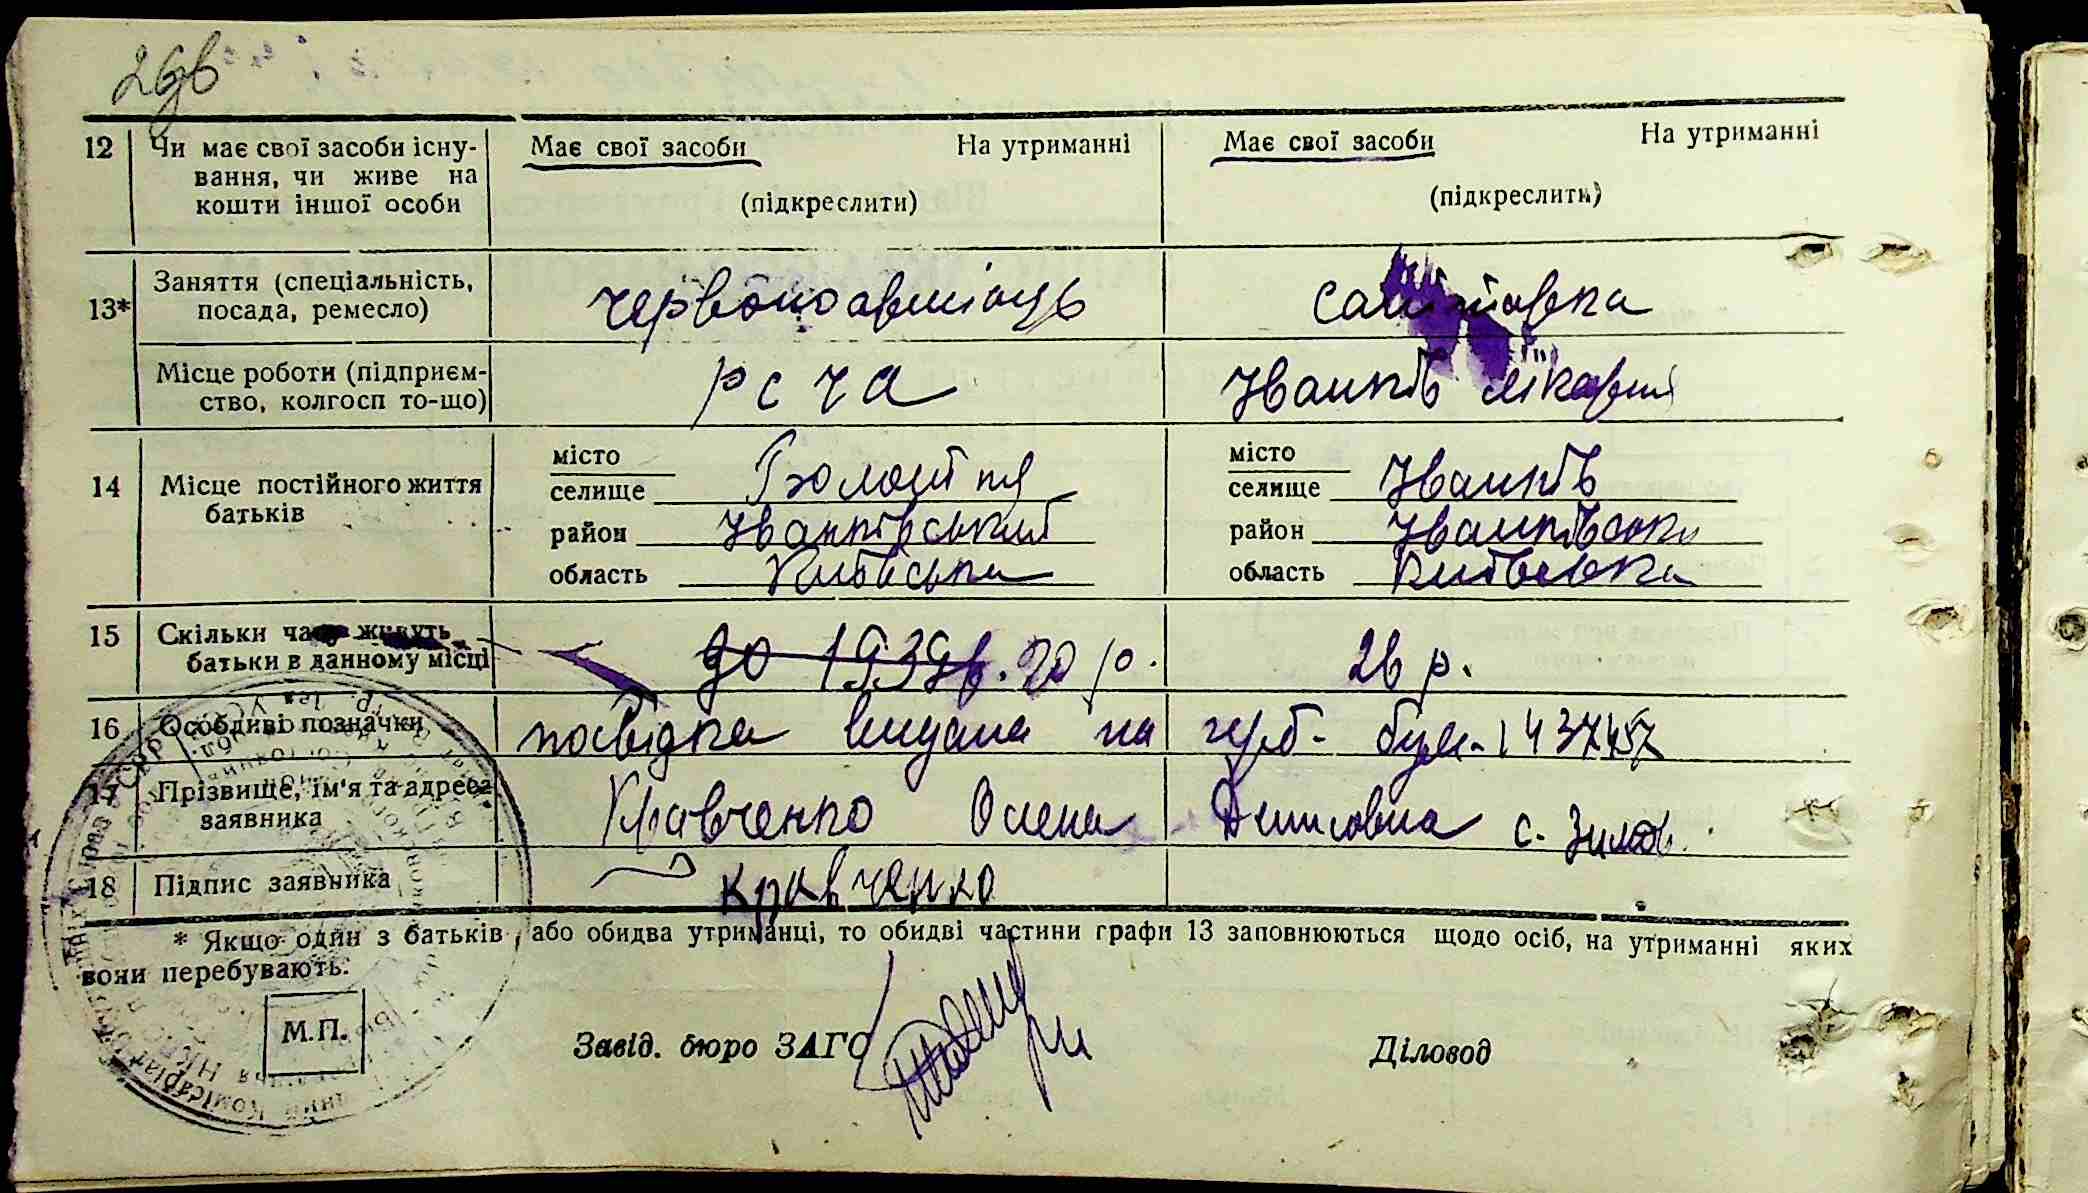 12 Чи має свої засоби існу- Має свої засоби На утриманні Має свої засоби На утриманні
вання, чи живе на
кошти іншої особи (підкреслити) (підкреслити)
13* Заняття (спеціальність, червоноармієць санітарка
посада, ремесло)
Місце роботи (підприєм- р с ч а Іванків лікарня
ство, колгосп то-що)
місто місто
14 Місце постійного життя селище Болотня селище Іванків
батьків район Іванківський район Іванківськи
область Київська область Київська
15 Скільки часу живуть до 1939 в. 20 р. 26 р.
батьки в данному місці
16 Особливі позначки посвідка видана на герб. бум. 1437457
17 Прізвище, ім'я та адреса Кравченко Олена Денисовна с.
заявника
18 Підпис заявника Кравченко
* Якщо один з батьків, або обидва утриманці, то обидві частини графи 13 заповнюються щодо осіб, на утриманні яких
вони перебувають.
М.П.
Завід. бюро ЗАГС Діловод